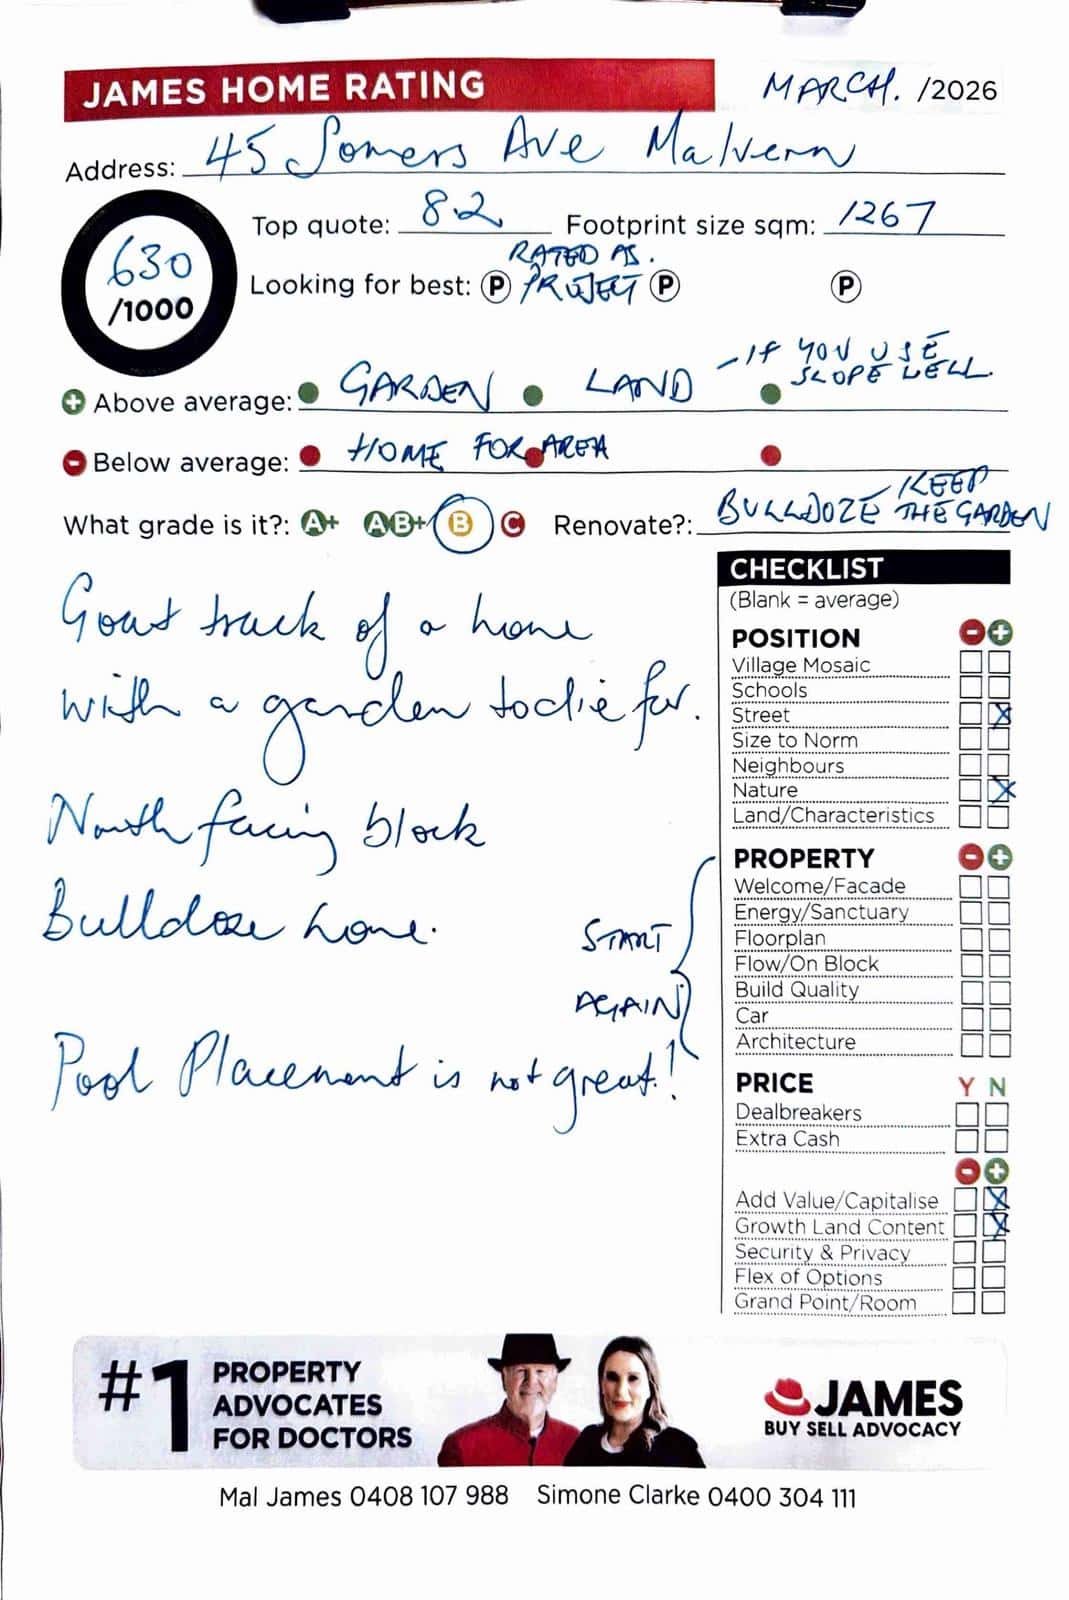 JAMES HOME RATING
MARCH. /2026
Address: 45 Somers Ave Malvern
630 /1000
Top quote: 8.2 Footprint size sqm: 1267
RATED AS.
Looking for best: P PROJECT P P
- IF YOU USE
SLOPE WELL.
+ Above average: GARDEN LAND
- Below average: HOME FOR AREA
What grade is it?: A+ AB+ B C Renovate?: BULLDOZE - KEEP
THE GARDEN
Goat track of a home
with a garden to die for.
North facing block
Bulldoze home.
START
AGAIN
Pool Placement is not great!
CHECKLIST
(Blank = average)
POSITION - +
Village Mosaic
Schools
Street X
Size to Norm
Neighbours
Nature X
Land/Characteristics
PROPERTY - +
Welcome/Facade
Energy/Sanctuary
Floorplan
Flow/On Block
Build Quality
Car
Architecture
PRICE Y N
Dealbreakers
Extra Cash
- +
Add Value/Capitalise X
Growth Land Content X
Security & Privacy
Flex of Options
Grand Point/Room
#1 PROPERTY
ADVOCATES
FOR DOCTORS
JAMES
BUY SELL ADVOCACY
Mal James 0408 107 988 Simone Clarke 0400 304 111